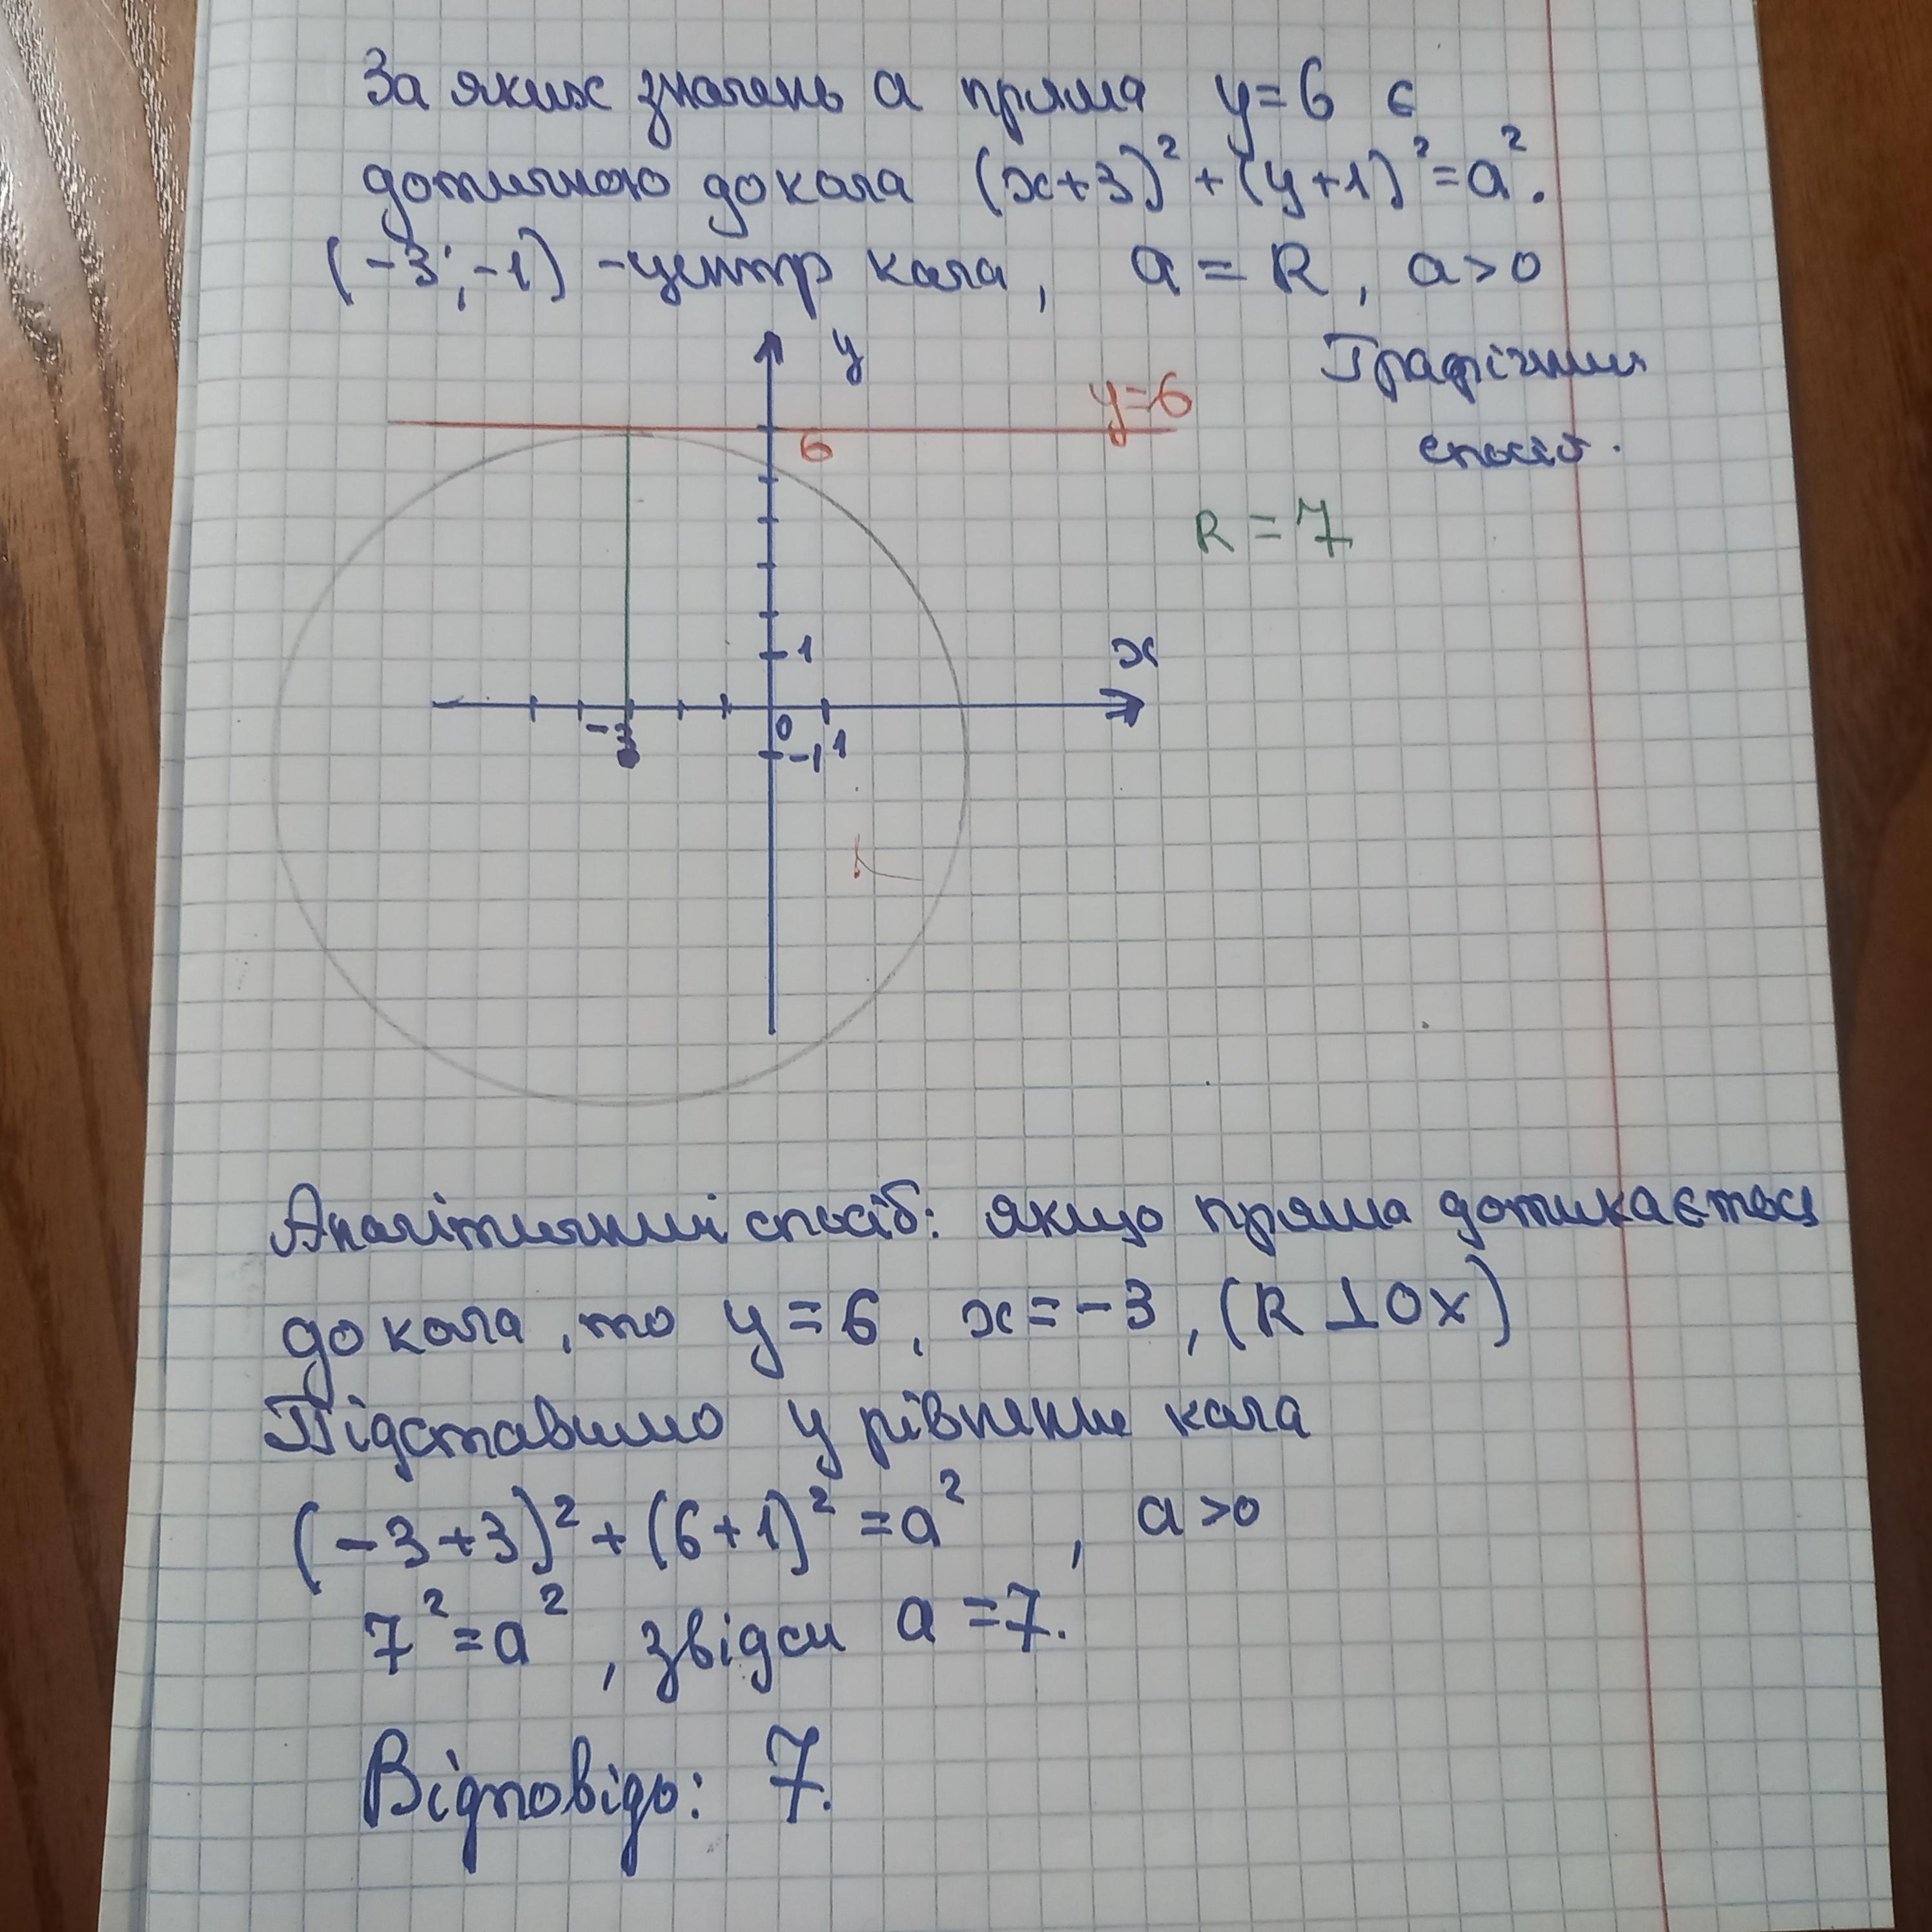 За яких значень a пряма y=6 є
дотичною до кола (x+3)²+(y+1)²=a².
(-3;-1) -центр кола, a=R, a>0
y
Графічний
y=6
6
спосіб.
R=7
1
x
-3
0
-1
1
Аналітичний спосіб: якщо пряма дотикається
до кола, то y=6, x=-3, (R⊥Ox)
Підставимо у рівняння кола
(-3+3)²+(6+1)²=a², a>0
7²=a², звідси a=7.
Відповідь: 7.